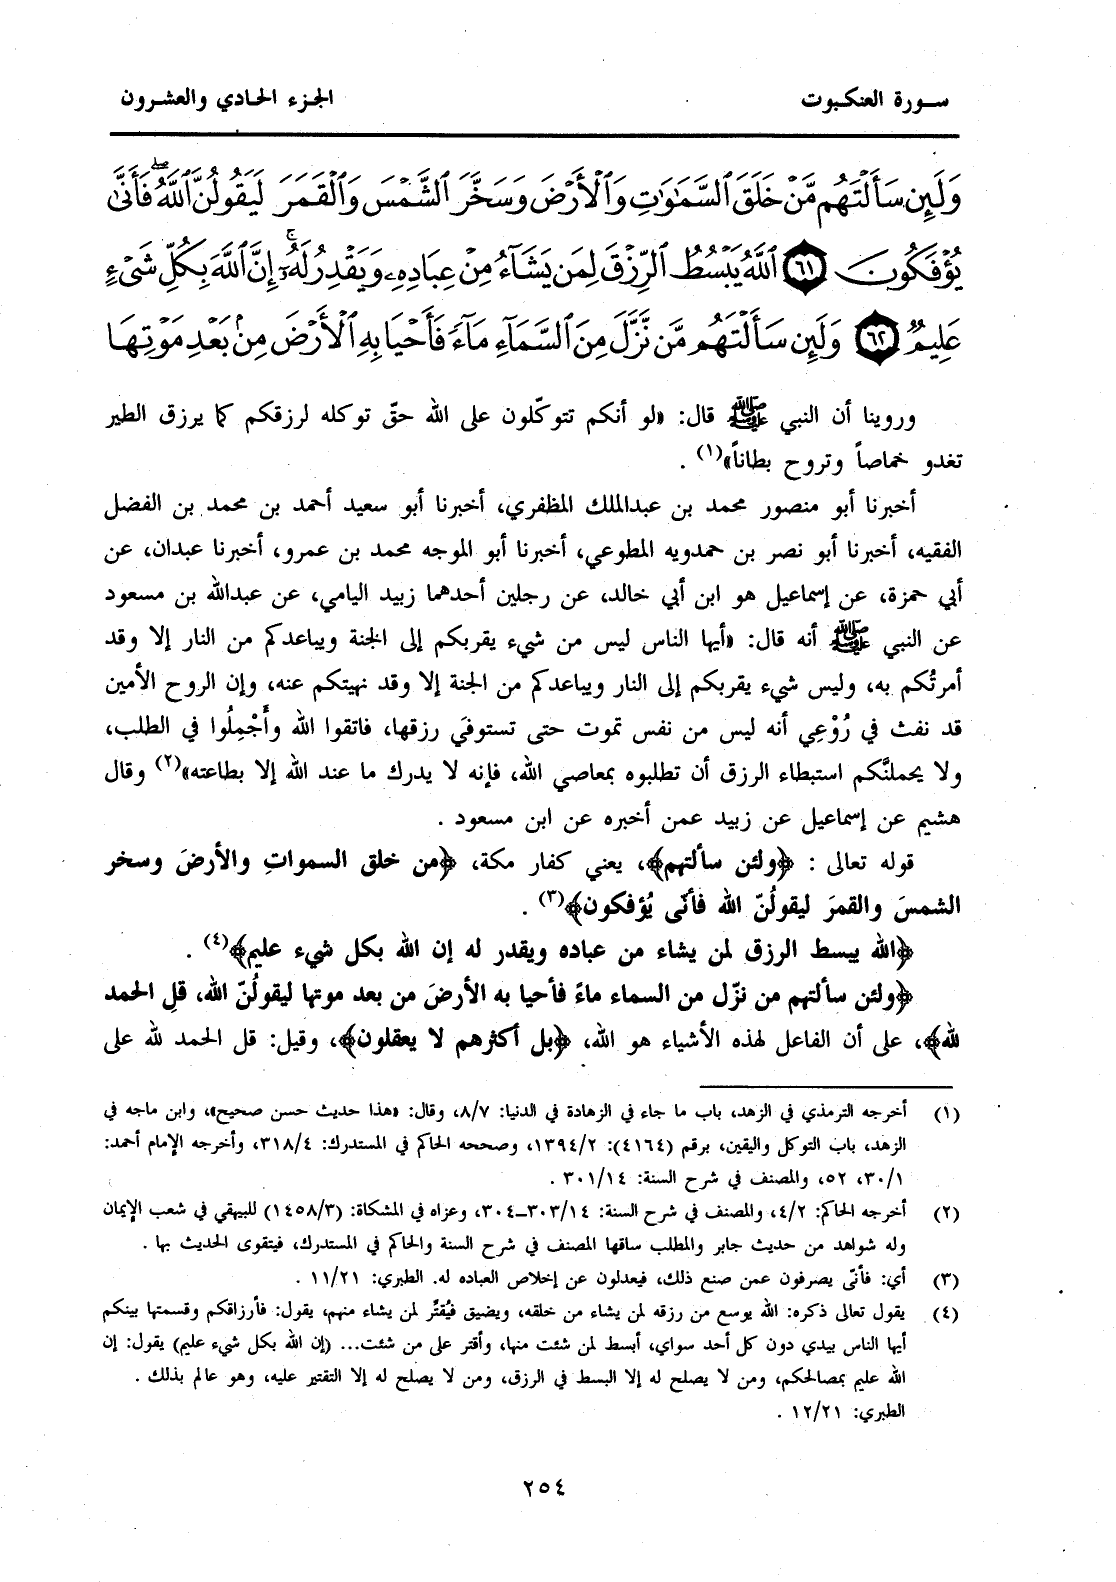 سورة العنكبوت
الجزء الحادي والعشرون
وَلَئِن سَأَلْتَهُم مَّنْ خَلَقَ ٱلسَّمَٰوَٰتِ وَٱلْأَرْضَ وَسَخَّرَ ٱلشَّمْسَ وَٱلْقَمَرَ لَيَقُولُنَّ ٱللَّهُ ۖ فَأَنَّىٰ
يُؤْفَكُونَ ﴿٦١﴾ ٱللَّهُ يَبْسُطُ ٱلرِّزْقَ لِمَن يَشَآءُ مِنْ عِبَادِهِۦ وَيَقْدِرُ لَهُۥٓ ۚ إِنَّ ٱللَّهَ بِكُلِّ شَىْءٍ
عَلِيمٌ ﴿٦٢﴾ وَلَئِن سَأَلْتَهُم مَّن نَّزَّلَ مِنَ ٱلسَّمَآءِ مَآءً فَأَحْيَا بِهِ ٱلْأَرْضَ مِنۢ بَعْدِ مَوْتِهَا
وروينا أن النبي ﷺ قال: «لو أنكم تتوكّلون على الله حقّ توكله لرزقكم كما يرزق الطير
تغدو خماصاً وتروح بطاناً»(١) .
أخبرنا أبو منصور محمد بن عبدالملك المظفري، أخبرنا أبو سعيد أحمد بن محمد بن الفضل
الفقيه، أخبرنا أبو نصر بن حمدويه المطوعي، أخبرنا أبو الموجه محمد بن عمرو، أخبرنا عبدان، عن
أبي حمزة، عن إسماعيل هو ابن أبي خالد، عن رجلين أحدهما زبيد اليامي، عن عبدالله بن مسعود
عن النبي ﷺ أنه قال: «أيها الناس ليس من شيء يقربكم إلى الجنة ويباعدكم من النار إلا وقد
أمرتُكم به، وليس شيء يقربكم إلى النار ويباعدكم من الجنة إلا وقد نهيتكم عنه، وإن الروح الأمين
قد نفث في رُوْعِي أنه ليس من نفس تموت حتى تستوفيَ رزقها، فاتقوا الله وأَجْمِلُوا في الطلب،
ولا يحملنَّكم استبطاء الرزق أن تطلبوه بمعاصي الله، فإنه لا يدرك ما عند الله إلا بطاعته»(٢) وقال
هشيم عن إسماعيل عن زبيد عمن أخبره عن ابن مسعود .
قوله تعالى : ﴿ولئن سألتهم﴾، يعني كفار مكة، ﴿من خلق السمواتِ والأرضَ وسخر
الشمسَ والقمرَ ليقولُنّ الله فأنّى يُؤفكون﴾(٣) .
﴿الله يبسط الرزق لمن يشاء من عباده ويقدر له إن الله بكل شيء عليم﴾(٤) .
﴿ولئن سألتهم من نزّل من السماء ماءً فأحيا به الأرضَ من بعد موتها ليقولُنّ الله، قلِ الحمد
لله﴾، على أن الفاعل لهذه الأشياء هو الله، ﴿بل أكثرهم لا يعقلون﴾، وقيل: قل الحمد لله على
(١) أخرجه الترمذي في الزهد، باب ما جاء في الزهادة في الدنيا: ٨/٧، وقال: «هذا حديث حسن صحيح»، وابن ماجه في
الزهد، باب التوكل واليقين، برقم (٤١٦٤): ١٣٩٤/٢، وصححه الحاكم في المستدرك: ٣١٨/٤، وأخرجه الإمام أحمد:
٣٠/١، ٥٢، والمصنف في شرح السنة: ٣٠١/١٤ .
(٢) أخرجه الحاكم: ٤/٢، والمصنف في شرح السنة: ٣٠٣/١٤ـ٣٠٤، وعزاه في المشكاة: (١٤٥٨/٣) للبيهقي في شعب الإيمان
وله شواهد من حديث جابر والمطلب ساقها المصنف في شرح السنة والحاكم في المستدرك، فيتقوى الحديث بها .
(٣) أي: فأنّى يصرفون عمن صنع ذلك، فيعدلون عن إخلاص العباده له. الطبري: ١١/٢١ .
(٤) يقول تعالى ذكره: الله يوسع من رزقه لمن يشاء من خلقه، ويضيق فيُقتِّر لمن يشاء منهم، يقول: فأرزاقكم وقسمتها بينكم
أيها الناس بيدي دون كل أحد سواي، أبسط لمن شئت منها، وأقتر على من شئت... (إن الله بكل شيء عليم) يقول: إن
الله عليم بمصالحكم، ومن لا يصلح له إلا البسط في الرزق، ومن لا يصلح له إلا التقتير عليه، وهو عالم بذلك .
الطبري: ١٢/٢١ .
٢٥٤